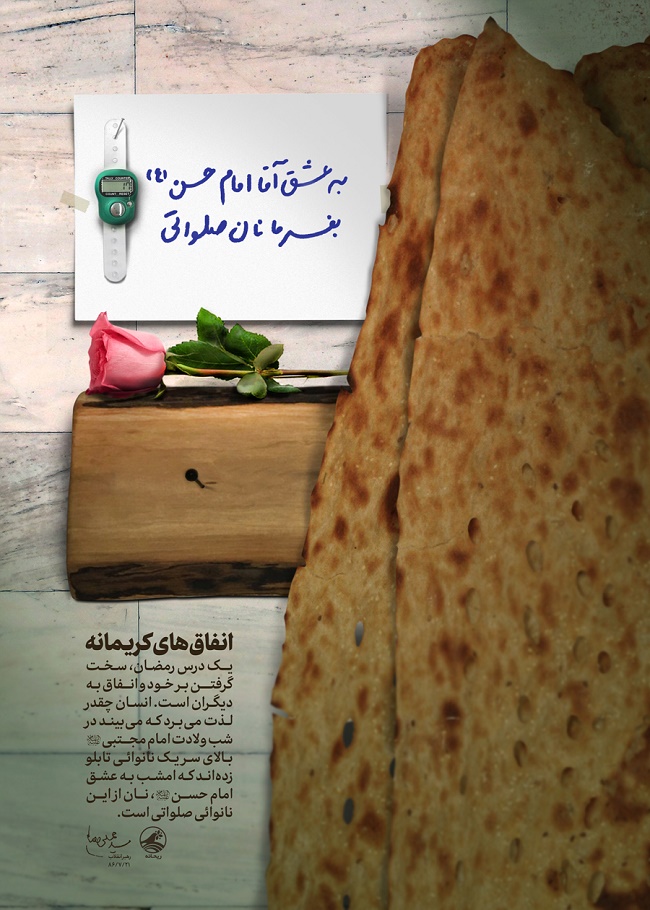 به عشق آقا امام حسن (ع)
بفرما نان صلواتی
TALLY COUNTER
COUNT RESET
انفاق‌های کریمانه
یک درس رمضان، سخت
گرفتن بر خود و انفاق به
دیگران است. انسان چقدر
لذت می‌برد که می‌بیند در
شب ولادت امام مجتبی
بالای سر یک نانوائی تابلو
زده‌اند که امشب به عشق
امام حسن، نان از این
نانوائی صلواتی است.
ریحانه
رهبر انقلاب
۸۶/۷/۲۱